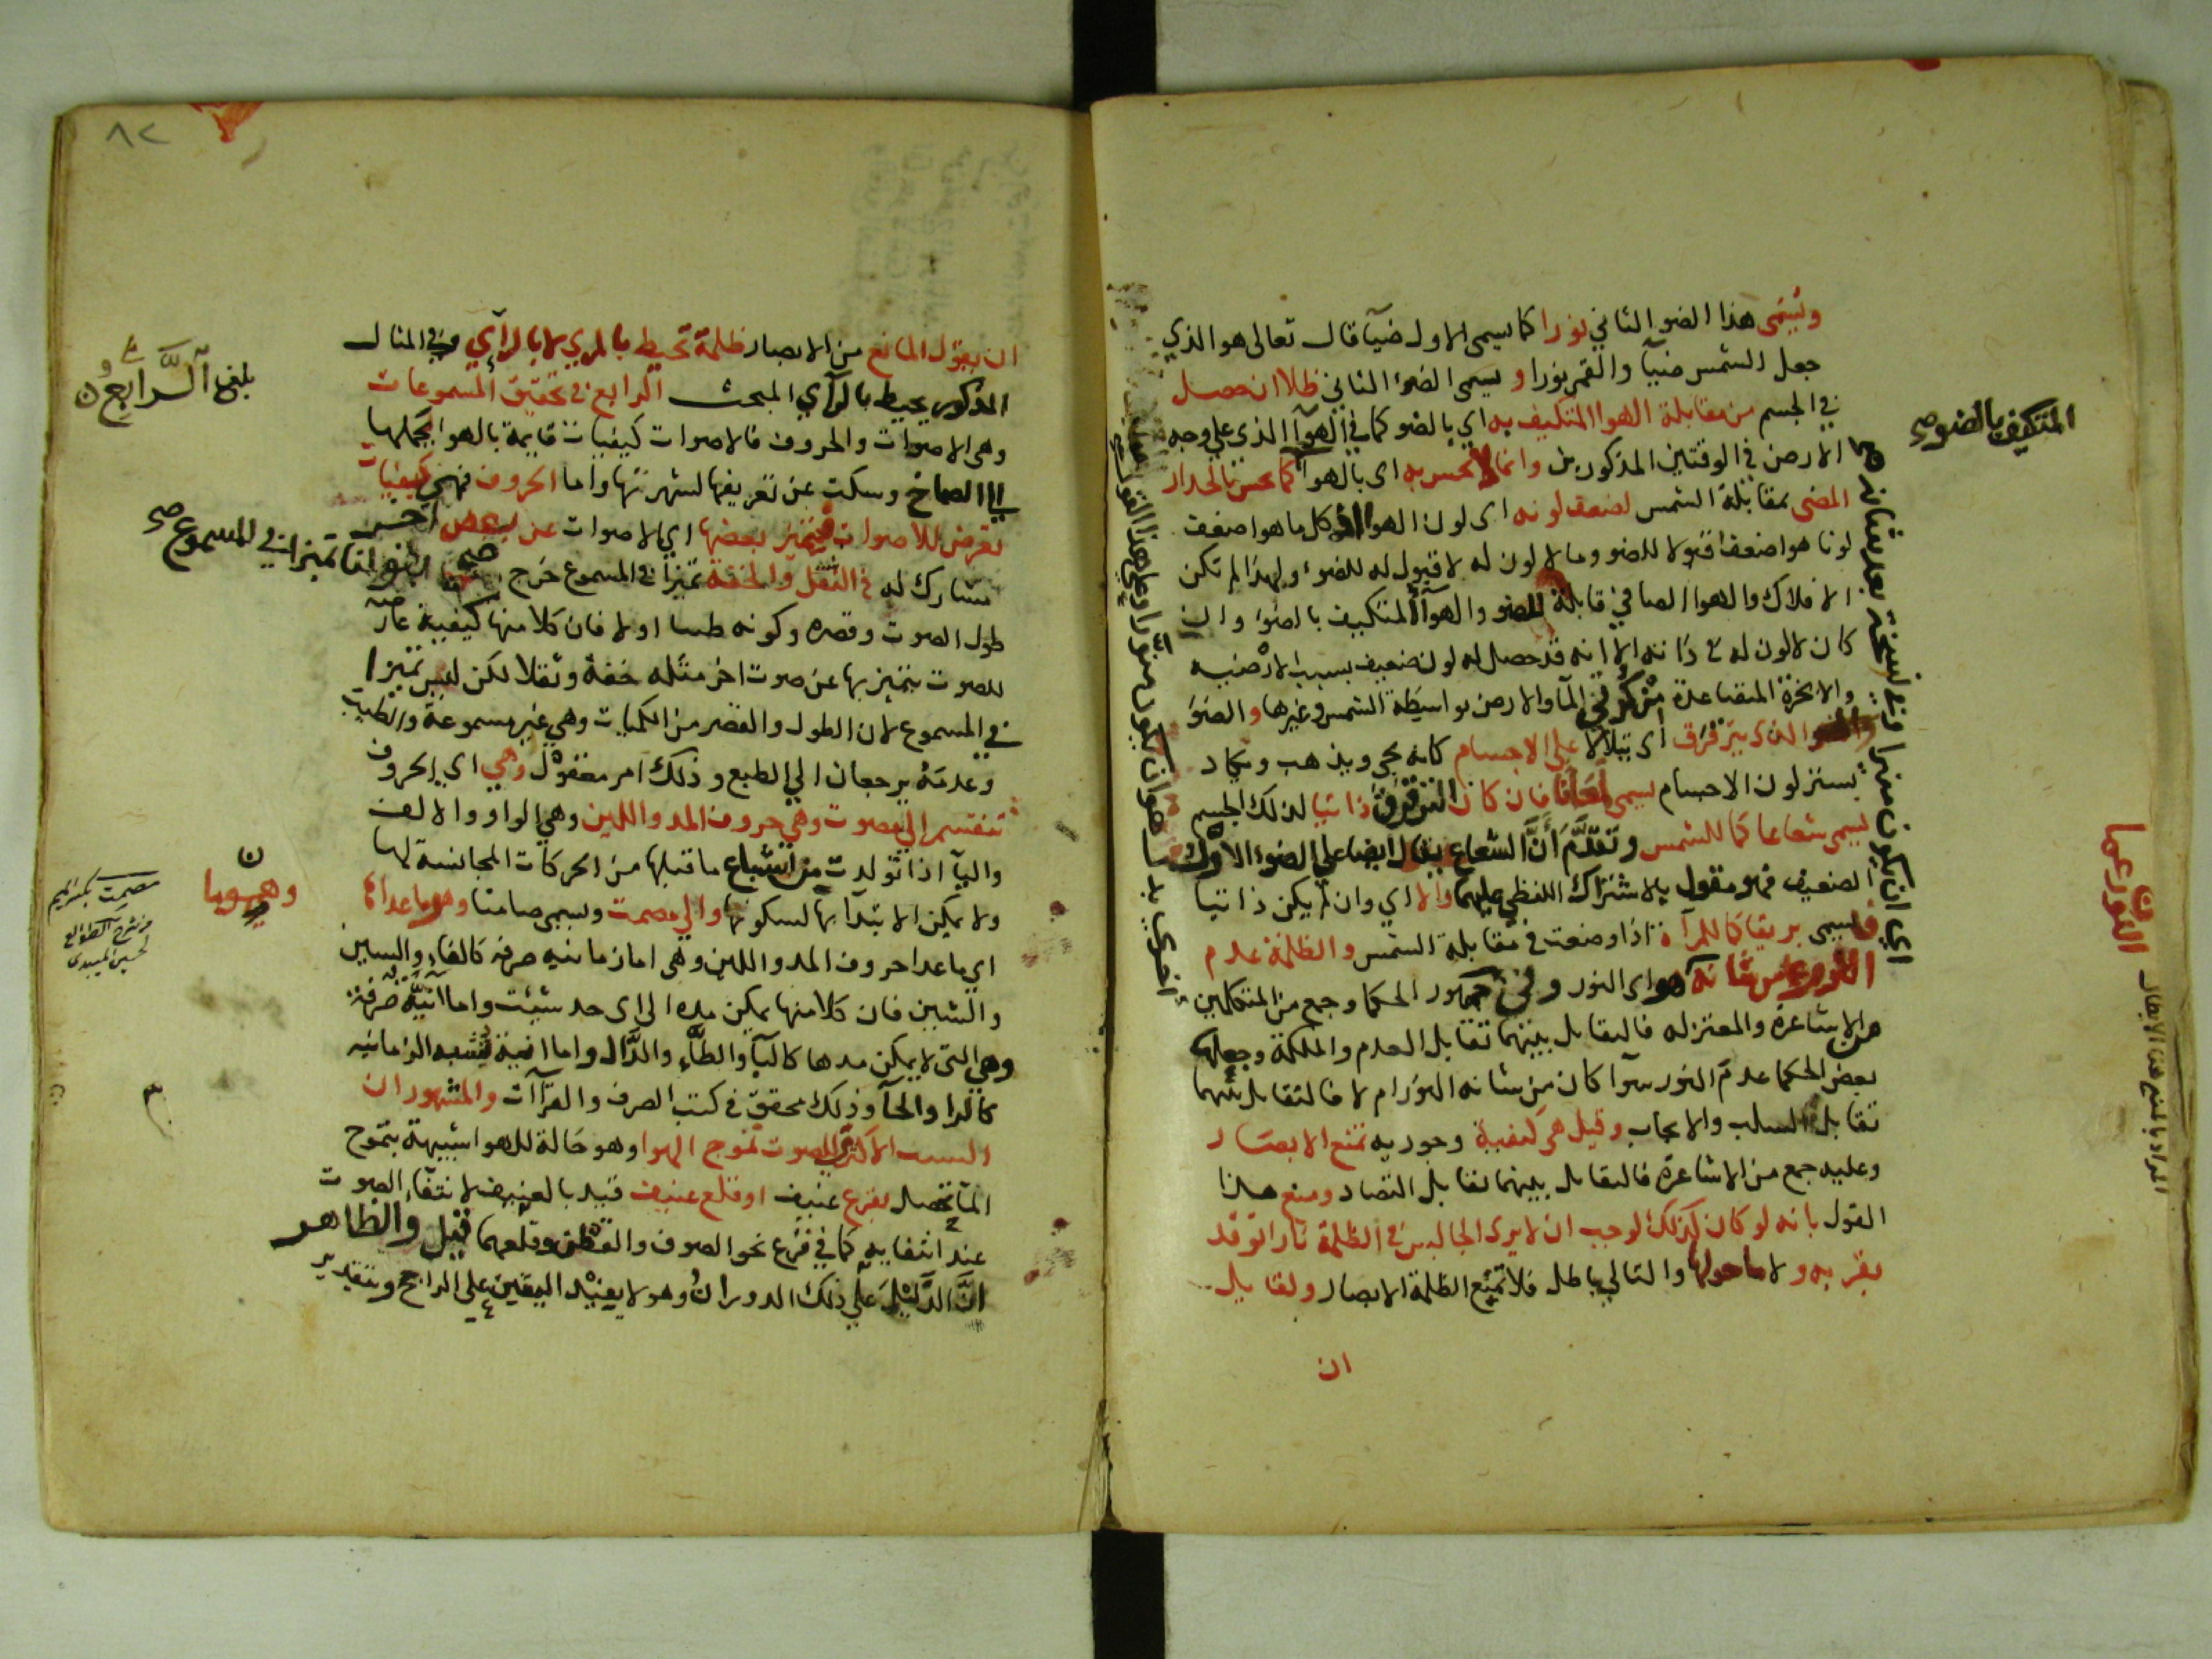 ويسمى هذا الضو الثاني نورا كما سمى الاول ضيآ قال تعالى هو الذي
جعل الشمس ضيآ والقمر نورا ويسمى الضوء الثاني ظلا ان حصل
في الجسم من مقابلة الهوا المتكيف به اي بالضو كما في الهوآ الذي علي وجه
المتكيف بالضو صح
الارض في الوقتين المذكورين وانما لا يحس به اى بالهوا كما يحس بالجدار
المضى بمقابلة الشمس لضعف لونه اى لون الهوا اذ كل ما هو اضعف
لونا هو اضعف قبولا للضو وما لا لون له لا قبول له للضوء ولهذا لم تكن
الافلاك والهوا الصافي قابلة للضو والهوآ المتكيف بالضوا وان
كان لا لون له في ذاته الا انه قد حصل له لون ضعيف بسبب الارضيه
والابخرة المتصاعدة من كرتي المآ والارض بواسطة الشمس وغيرها والضو
الذى يترقرق اى يتلالا على الاجسام كانه يجى ويذهب ويكاد
يستر لون الاجسام يسمى لمعانا فان كان الترقرق ذاتيا لذلك الجسم
يسمى شعاعا كما للشمس وتقدم ان الشعاع يقال ايضا علي الضوء الاول
الضعيف فهو مقول بالاشتراك اللفظي عليهما والا اي وان لم يكن ذاتيا
فيسمى بريقا كما للمرآة اذا وضعت في مقابلة الشمس والظلمة عدم
النور عما من شانه هو اى النور وفى جمهور الحكما وجمع من المتكلمين
من الاشاعرة والمعتزله فالتقابل بينهما تقابل العدم والملكة وجعلها
بعض الحكما عدم النور سوآ كان من شانه النور ام لا فالتقابل بينهما
تقابل السلب والايجاب وقيل هي كيفية وجوديه تمنع الابصار
وعليه جمع من الاشاعرة فالتقابل بينهما تقابل التضاد ومنع هذا
القول بانه لو كان كذلك لوجب ان لا يرى الجالس في الظلمة نارا توقد
بقربه ولا ما حولها والتالي باطل فلا تمنع الظلمة الابصار ولقايل
ان
النور عما
ان يقول المانع من الابصار ظلمة تحيط بالمرئي لا بالرآي وفي المثال
المذكور يحيط بالرآي المبحث الرابع في تحقيق المسموعات
بلغ الرابع
وهي الاصوات والحروف فالاصوات كيفيات قايمة بالهوا يحملها
الي الصماخ وسكت عن تعريفها لشهرتها واما الحروف فهي كيفيات
تعرض للاصوات فيتميز بعضها اي الاصوات عن بعض آخر
يشارك له في الثقل والخفة تميزا في المسموع خرج
تميزا في المسموع صح
طول الصوت وقصره وكونه طيبا اولا فان كلا منها كيفيية عارضة
للصوت يتميز بها عن صوت اخر مثله خفة وثقلا لكن ليس تميزا
في المسموع لان الطول والقصر من الكميات وهي غير مسموعة والطيب
وعدمه يرجعان الي الطبع وذلك امر معقول وهي اي الحروف
تنقسم الي مصوت وهي حروف المد واللين وهي الواو والالف
واليآ اذا تولدت من اشباع ما قبلها من الحركات المجانسة لها
ولا يمكن الابتدآ بها لسكونها والي مصمت ويسمى صامتا وهو ما عداها
مصمت بكسر الميم
من شرح الطوالع
لحسين الميبدى
اي ما عدا حروف المد واللين وهى اما زمانيه صرفه كالفاء والسين
والشين فان كلا منها يمكن مده الى اى حد شيت واما آنيه صرفة
وهي التى لا يمكن مدها كالبآ والطآء والدال واما انية تشبه الزمانيه
كالرا والحآ وذلك محقق في كتب الصرف والقرآآت والمشهور ان
السبب الاكثرى للصوت تموج الهوا وهو حالة للهوا شبيهة بتموج
المآ تحصل بقرع عنيف او قلع عنيف قيد بالعنيف لانتفاء الصوت
عند انتفايه كما في قرع نحو الصوف والقطن وقلعهما قيل والظاهر
ان الدليل علي ذلك الدوران وهو لا يفيد اليقين علي الراجح وبتقدير